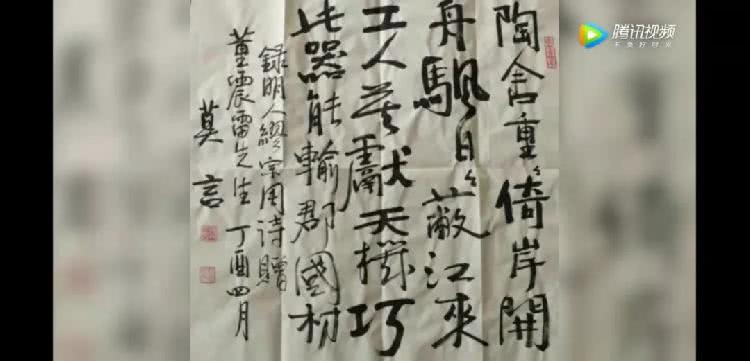 陶舍重々倚岸開
舟颿日々蔽江來
工人莫獻天機巧
此器能輸郡國材
錄明人繆宗周詩贈
董震雷先生 丁酉四月
莫言
腾讯视频
不负好时光